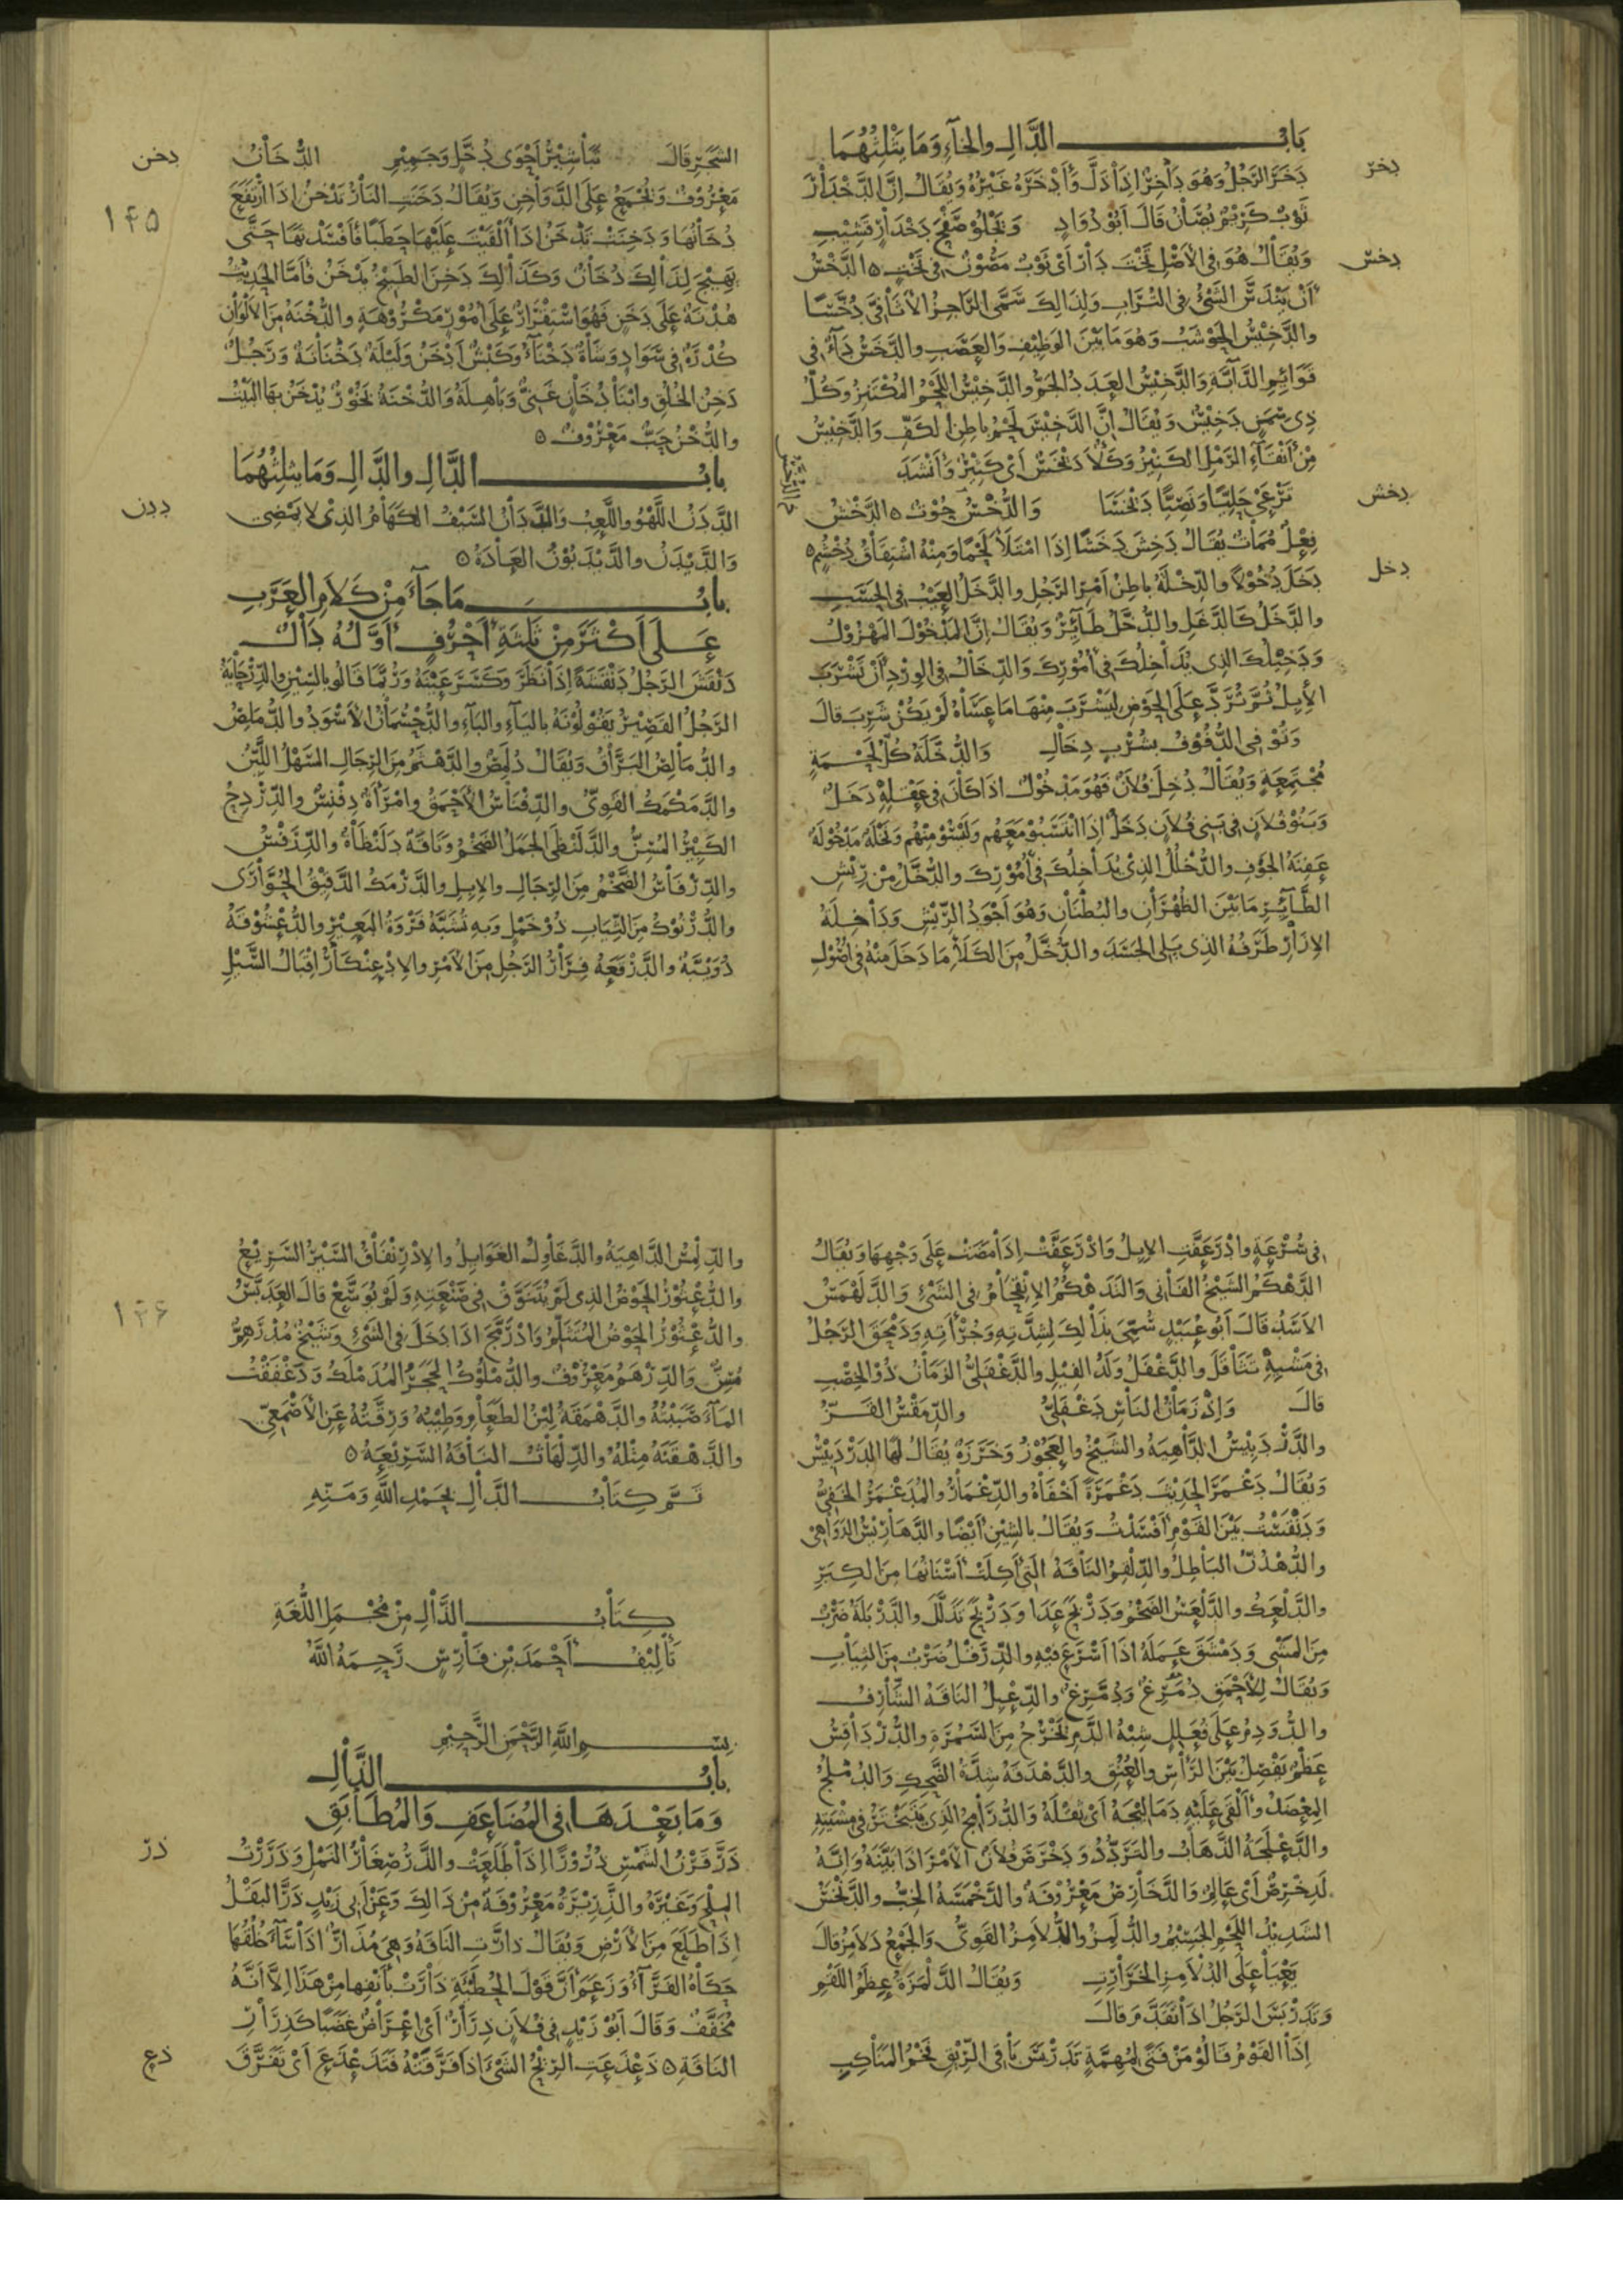 باب الدال والخاء وما يثلثهما
دخر
دخر الرجل وهو داخر اذا ذل وأدخره غيره ويقال ان الدخدار
ثوب كريم يصان قال ابو دواد وتجلو صفح دخدار قشيب
دخس
ويقال هو في الاصل تخت دار اي ثوب مصون في تخت ه الدخس
ان يندس الشيء في التراب ولذلك سمى الراجز الاثافي دخسا
والدخيس الحوشب وهو ما بين الوظيف والعصب والدخس داء في
قوائم الدابة والدخيس العدد الجم والدخيس اللحم المكتنز وكل
ذي سمن دخيس ويقال ان الدخيس لحم باطن الكف والدخيس
من أنقاء الرمل الكثير وكلأ ديخس اي كثير وأنشد
ترعى حليا ونصيا ديخسا والدخس حوت ه الدخش
دخش
فعل ممات يقال دخش دخشا اذا امتلأ لحما ومنه اشتقاق دخشم ه
دخل
دخل دخولا والدخلة باطن امر الرجل والدخل العيب في الحسب
والدخل كالدغل والدخل طائر ويقال ان المدخول المهزول
ودخيلك الذي يداخلك في أمورك والدخال في الورد أن تشرب
الأبل ثم ترد على الحوض ليشرب منها ما عساه لم يكن شرب قال
وتوفي الدفوف بشرب دخال والدخلة كل لحمة
مجتمعة ويقال دخل فلان فهو مدخول اذا كان في عقله دخل
وبنو فلان في بني فلان دخل اذا انتسبو معهم وليسو منهم ونخلة مدخولة
عفنة الجوف والدخلل الذي يداخلك في أمورك والدخل من ريش
الطائر ما بين الظهران والبطنان وهو اجود الريش وداخلة
الازار طرفه الذي يلي الجسد والدخل من الكلأ ما دخل منه في اصول
الشجر قال تباشير أحوى دخل وجميم الدخان
دخن
معروف وتجمع على الدواخن ويقال دخنت النار تدخن اذا ارتفع
١٤٥
دخانها ودخنت تدخن اذا القيت عليها حطبا فافسدتها حتى
يهيج لذلك دخان وكذلك دخن الطبيخ يدخن فأما الحديث
هدنة على دخن فهو استقرار على أمور مكروهة والدخنة من الالوان
كدرة في سواد وشاة دخناء وكبش أدخن وليلة دخنانة ورجل
دخن الخلق وابنا دخان غني وباهلة والدخنة بخور يدخن بها البيت
والدخن حب معروف ه
باب الدال والدال وما يثلثهما
ددن
الددن اللهو واللعب والددان السيف الكهام الذي لا يمضي
والديدن والديدبون العادة ه
باب ما جاء من كلام العرب
على اكثر من ثلثة احرف اوله دال
دنقس الرجل دنقسة اذا نظر وكسر عينه وربما قالو بالشين والدرحاية
الرجل القصير يقولونه بالباء والياء والدحسمان الاسود والدملص
والدمالص البراق ويقال دلمص والدهثم من الرجال السهل اللين
والدمكمك القوي والدفناس الاحمق وامرأة دفنس والدردح
الكبير المسن والدلنظى الجمل الضخم وناقة دلنظاة والدرفس
والدرفاس الضخم من الرجال والابل والدرمك الدقيق الحوارى
والدرنوك من الثياب ذو خمل وبه تشبه فروة البعير والدعشوقة
دويبة والدرقعة فرار الرجل من الامر والادعنكار اقبال السيل
في سرعة وادرعفت الابل واذرعفت اذا مضت على وجهها ويقال
الدهكم الشيخ الفاني والتدهكم الانقحام في الشيء والدلهمس
الاسد قال ابو عبيد سمي بذلك لشدته وجرأته ودمحق الرجل
في مشيه تثاقل والدغفل ولد الفيل والدغفلي الزمان ذو الخصب
قال واذ زمان الناس دغفلي والدمقس القز
والدردبيس الداهية والشيخ والعجوز وخرزة يقال لها الدردبيس
ويقال دغمر الحديث دغمرة أخفاه والدغمار والمدغمر الخفي
ودنقست بين القوم افسدت ويقال بالشين أيضا والدهاريس الدواهي
والدهدن الباطل والدلقم الناقة التي أكلت أسنانها من الكبر
والدلعك والدلعس الضخم ودربح عدا ودربخ تذلل والدربلة ضرب
من المشي ودمشق عمله اذا أسرع فيه والدرقل ضرب من الثياب
ويقال للاحمق دمرغ ودمرغ والدعبل الناقة الشارف
والدودم على فعلل شبه الدم يخرج من السمرة والدرداقس
عظم يفصل بين الرأس والعنق والدهدقة شدة الضحك والدملج
المعضد وألقى عليه دمالجه أي ثقله والدرامج الذي يتبختر في مشيته
والدعلجة الذهاب والتردد ودخرص فلان الامر اذا بينه وانه
لدخرص أي عالم والدخارص معروفة والدخمسة الخب والدلخس
الشديد اللحم الجسيم والدلمز والدلامز القوي والجمع دلامز قال
يعيا على الدلامز الخرارت ويقال الدلمزة عظم اللقم
وتدربس الرجل اذا تقدم قال
اذا القوم قالو من فتى لمهمة تدربس باقي الريق فخم المناكب
والدلمس الداهية والدغاول الغوايل والادرنفاق السير السريع
والدعثور الحوض الذي لم يتنوق في صنعته ولم يوسع قال العدبس
١٤٦
والدعثور الحوض المتثلم وادرمج اذا دخل في الشيء وشيخ مدرهم
مسن والدرهم معروف والدملوك الحجر المدملك ودغفقت
الماء صببته والدهمقة لين الطعام وطيبه ورقته عن الاصمعي
والدهقنة مثله والدلهاث الناقة السريعة ه
تم كتاب الدال بحمد الله ومنه
كتاب الذال من مجمل اللغة
تأليف أحمد بن فارس رحمه الله
بسم الله الرحمن الرحيم
باب الذال
وما بعدها في المضاعف والمطابق
ذر
ذر قرن الشمس ذرورا اذا طلعت والذر صغار النمل وذررت
الملح وغيره والذريرة معروفة من ذالك وعن ابي زيد ذر البقل
اذا طلع من الارض ويقال ذارت الناقة وهي مذار اذا ساء خلقها
حكاه الفراء وزعم أن قول الحطيئة ذارت بأنفها من هذا الا أنه
مخفف وقال ابو زيد في فلان ذرار أي اعراض غضبا كذرار
ذع
الناقة ه ذعذعت الريح الشيء اذا فرقته فتذعذع أي تفرق